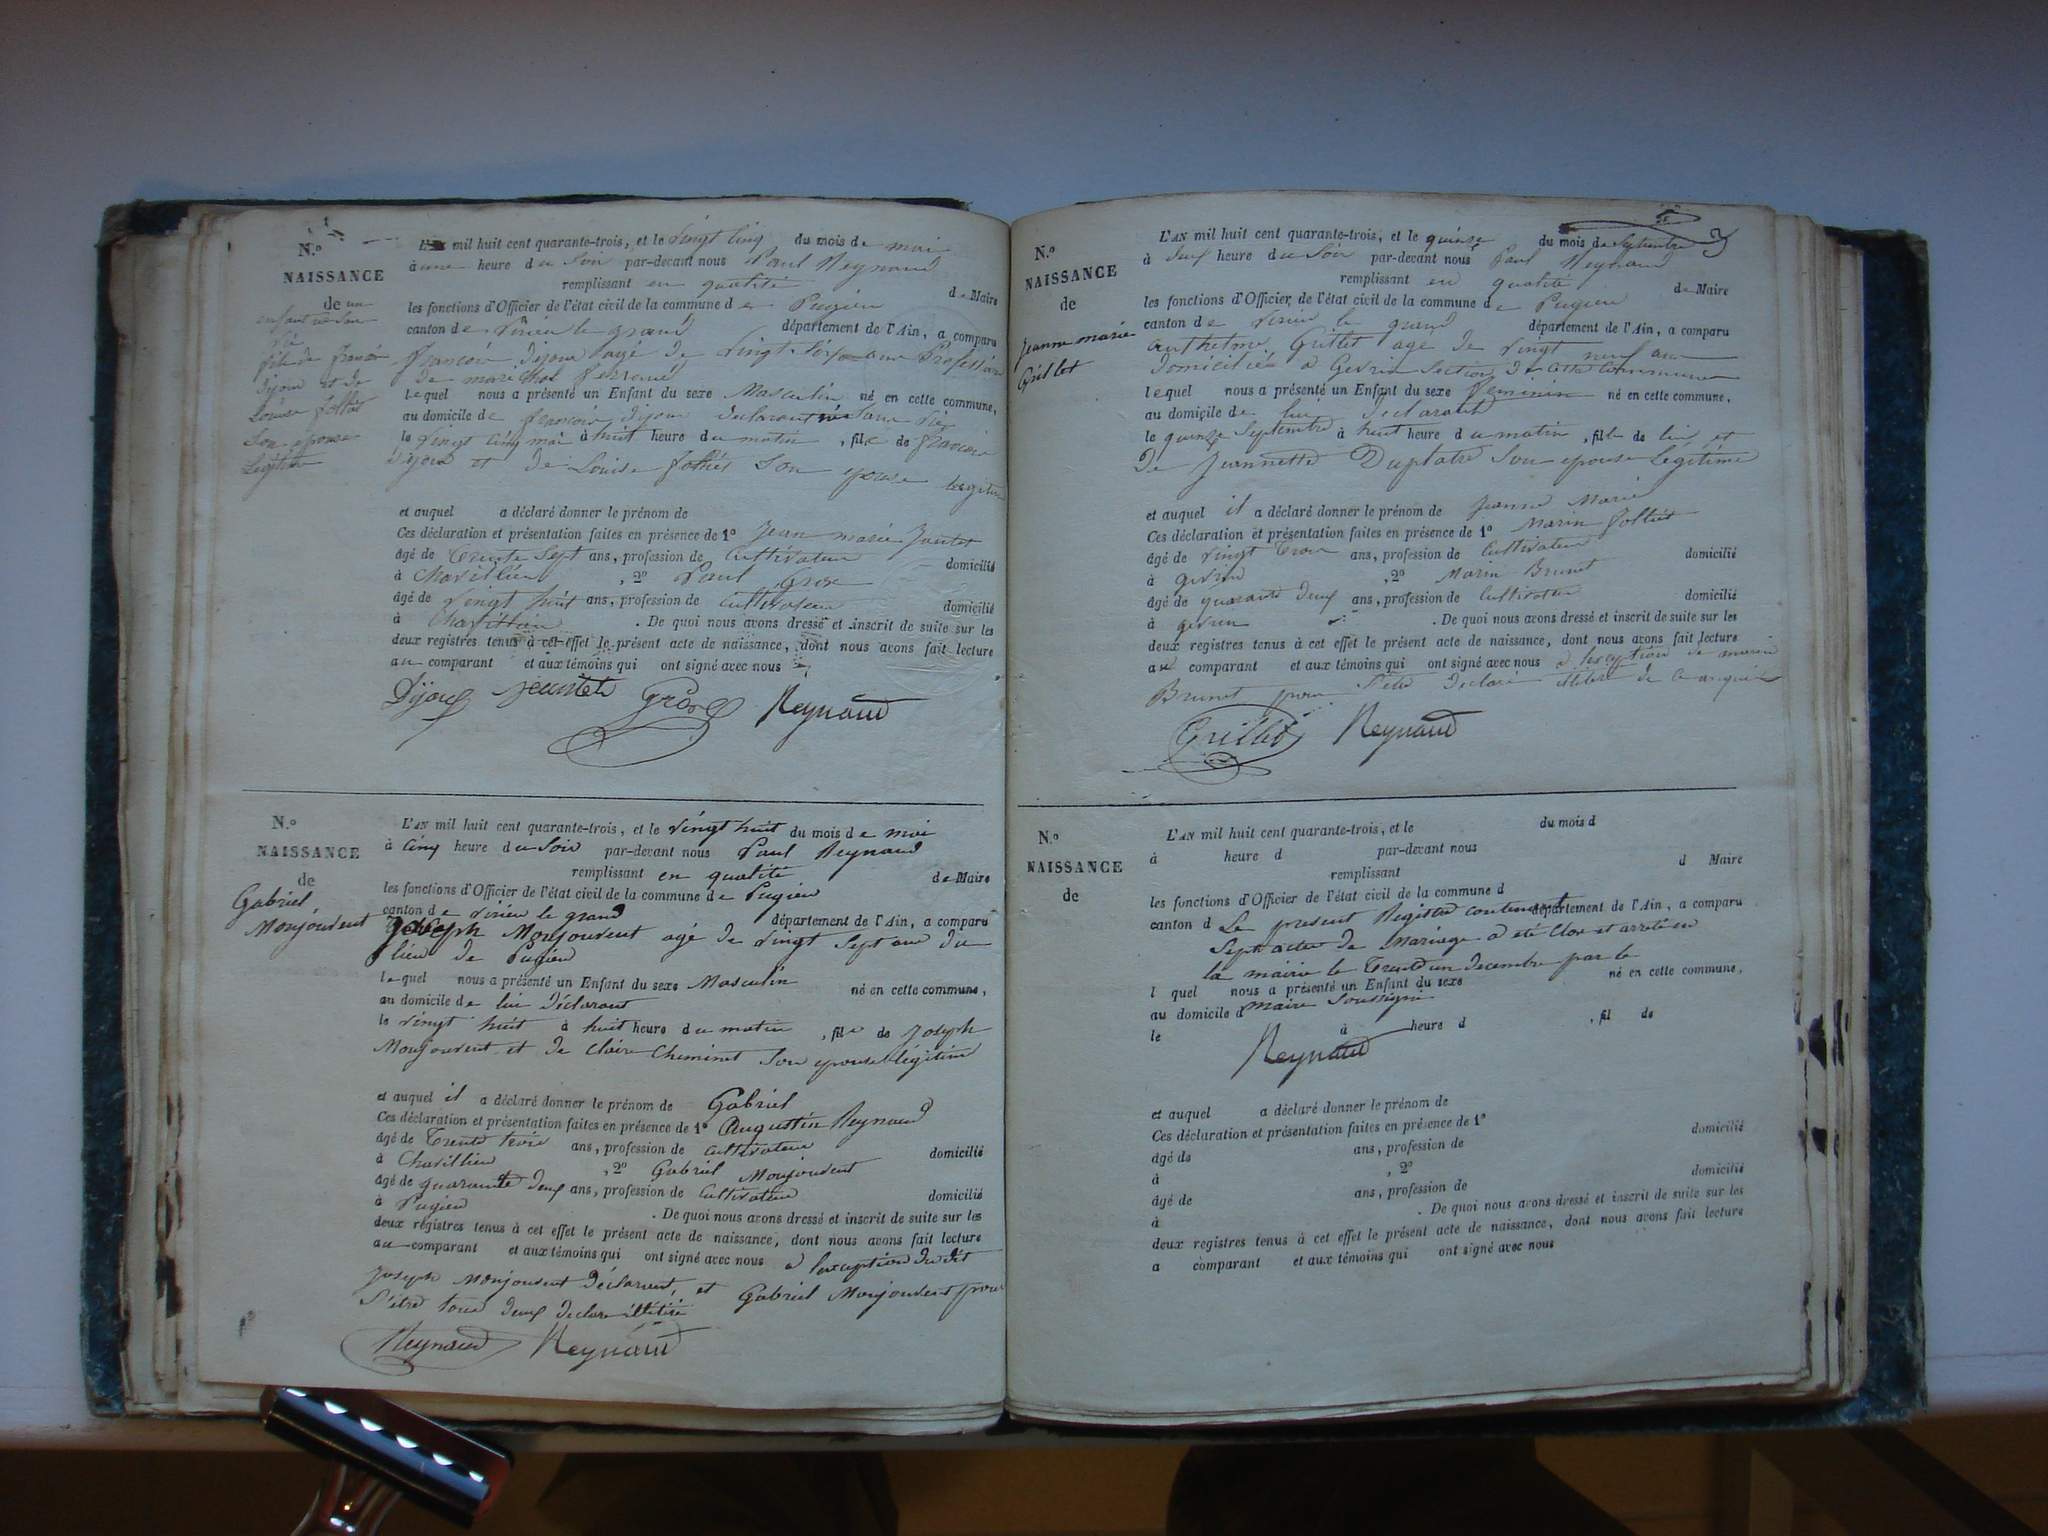 N.º
NAISSANCE
de un
enfant né San
vie
fils de francois
dijoud et de
Louise folliet
son epouse
Légitime
L'AN mil huit cent quarante-trois, et le vingt cinq du mois de mai
à une heure du Soir par-devant nous Paul Reynaud
remplissant en qualité de Maire
les fonctions d'Officier de l'état civil de la commune de Pugieu
canton de virieu le grand département de l'Ain, a comparu
francois dijoud agé de vingt six ans Profession
de marichal ferrand
lequel nous a présenté un Enfant du sexe Masculin né en cette commune,
au domicile de francois dijoud declarant né sans vie
le vingt cinq mai à huit heure du matin, fils de francois
dijoud et de Louise folliet son epouse legitime
et auquel a déclaré donner le prénom de
Ces déclaration et présentation faites en présence de 1º Jean marie
âgé de Trente Sept ans, profession de Cultivateur domicilié
à Chavillieu, 2º Paul Gros
âgé de vingt huit ans, profession de Cultivateur domicilié
à Chavillieu. De quoi nous avons dressé et inscrit de suite sur les
deux registres tenus à cet effet le présent acte de naissance, dont nous avons fait lecture
au comparant et aux témoins qui ont signé avec nous
Dijoud Gros Reynaud
N.º
NAISSANCE
de
Gabriel
Monjouvent
L'AN mil huit cent quarante-trois, et le vingt huit du mois de mai
à Cinq heure du Soir par-devant nous Paul Reynaud
remplissant en qualité de Maire
les fonctions d'Officier de l'état civil de la commune de Pugieu
canton de virieu le grand département de l'Ain, a comparu
Joseph Monjouvent agé de vingt sept ans du
lieu de Pugieu
lequel nous a présenté un Enfant du sexe Masculin né en cette commune,
au domicile de lui déclarant
le vingt huit à huit heure du matin, fils de Joseph
Monjouvent et de Claire Cheminet son epouse legitime
et auquel il a déclaré donner le prénom de Gabriel
Ces déclaration et présentation faites en présence de 1º Augustin Reynaud
âgé de Trente trois ans, profession de Cultivateur domicilié
à Chavillieu, 2º Gabriel Monjouvent
âgé de quarante deux ans, profession de Cultivateur domicilié
à Pugieu. De quoi nous avons dressé et inscrit de suite sur les
deux registres tenus à cet effet le présent acte de naissance, dont nous avons fait lecture
au comparant et aux témoins qui ont signé avec nous a l'exception dudit
Joseph Monjouvent déclarant, et Gabriel Monjouvent pour
s'être tous deux declaré illitiré
Reynaud Reynaud
N.º
NAISSANCE
de
Jeanne marie
Grillot
L'AN mil huit cent quarante-trois, et le quinze du mois de Septembre
à deux heure du Soir par-devant nous Paul Reynaud
remplissant en qualité de Maire
les fonctions d'Officier de l'état civil de la commune de Pugieu
canton de virieu le grand département de l'Ain, a comparu
anthelme Grillet agé de vingt neuf ans
domiciliés a Gevrin Section de cette commune
lequel nous a présenté un Enfant du sexe feminin né en cette commune,
au domicile de lui declarant
le quinze Septembre à huit heure du matin, fille de lui et
de Jeannette Duplatre son epouse Legitime
et auquel il a déclaré donner le prénom de Jeanne Marie
Ces déclaration et présentation faites en présence de 1º Marin folliet
âgé de vingt trois ans, profession de Cultivateur domicilié
à gevrin, 2º Marin Brunet
âgé de quarante deux ans, profession de Cultivateur domicilié
à gevrin. De quoi nous avons dressé et inscrit de suite sur les
deux registres tenus à cet effet le présent acte de naissance, dont nous avons fait lecture
au comparant et aux témoins qui ont signé avec nous a lexception de marin
Brunet pour s'être declaré illitiré de ce enquis
Grillet Reynaud
N.º
NAISSANCE
de
L'AN mil huit cent quarante-trois, et le du mois d
à heure d par-devant nous
remplissant d Maire
les fonctions d'Officier de l'état civil de la commune d
canton d département de l'Ain, a comparu
Le present Registre contenant
Sept actes de Mariage a été clos et arrêté en
la mairie le trente un decembre par le
l quel nous a présenté un Enfant du sexe né en cette commune,
au domicile d
maire Soussigné
le à heure d, fil de
Reynaud
et auquel a déclaré donner le prénom de
Ces déclaration et présentation faites en présence de 1º
âgé de ans, profession de domicilié
à, 2º
âgé de ans, profession de domicilié
à. De quoi nous avons dressé et inscrit de suite sur les
deux registres tenus à cet effet le présent acte de naissance, dont nous avons fait lecture
a comparant et aux témoins qui ont signé avec nous